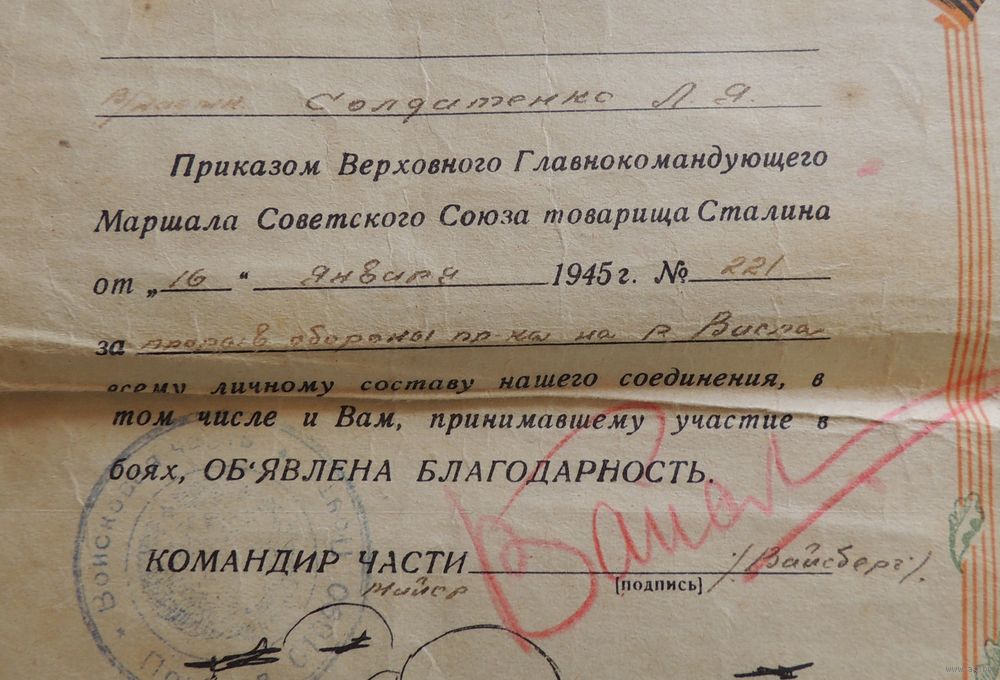 Солдатенко Л. Я.
Приказом Верховного Главнокомандующего
Маршала Советского Союза товарища Сталина
от „16“ января 1945 г. № 221
за прорыв обороны пр-ка на р. Висла
всему личному составу нашего соединения, в
том числе и Вам, принимавшему участие в
боях, ОБ‘ЯВЛЕНА БЛАГОДАРНОСТЬ.
КОМАНДИР ЧАСТИ (Вайсберг).
Майор [подпись]